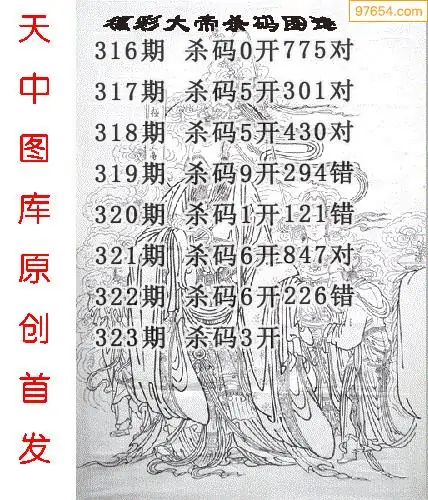 97654.com
福彩大帝杀码图迷
316期 杀码0开775对
317期 杀码5开301对
318期 杀码5开430对
319期 杀码9开294错
320期 杀码1开121错
321期 杀码6开847对
322期 杀码6开226错
323期 杀码3开
天中图库原创首发